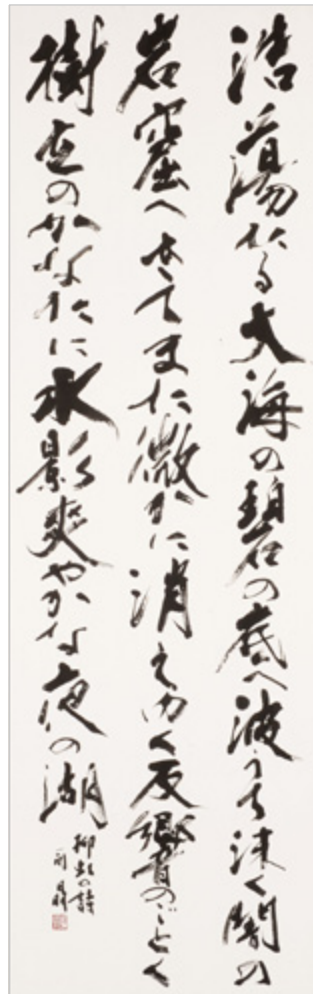 浩蕩たる大海の碧の底へ波うち沫く闇の
岩窟へきてまた微かに消えゆく反響のごとく
樹立のかなたに水影爽やかな夜の湖
柳虹の詩